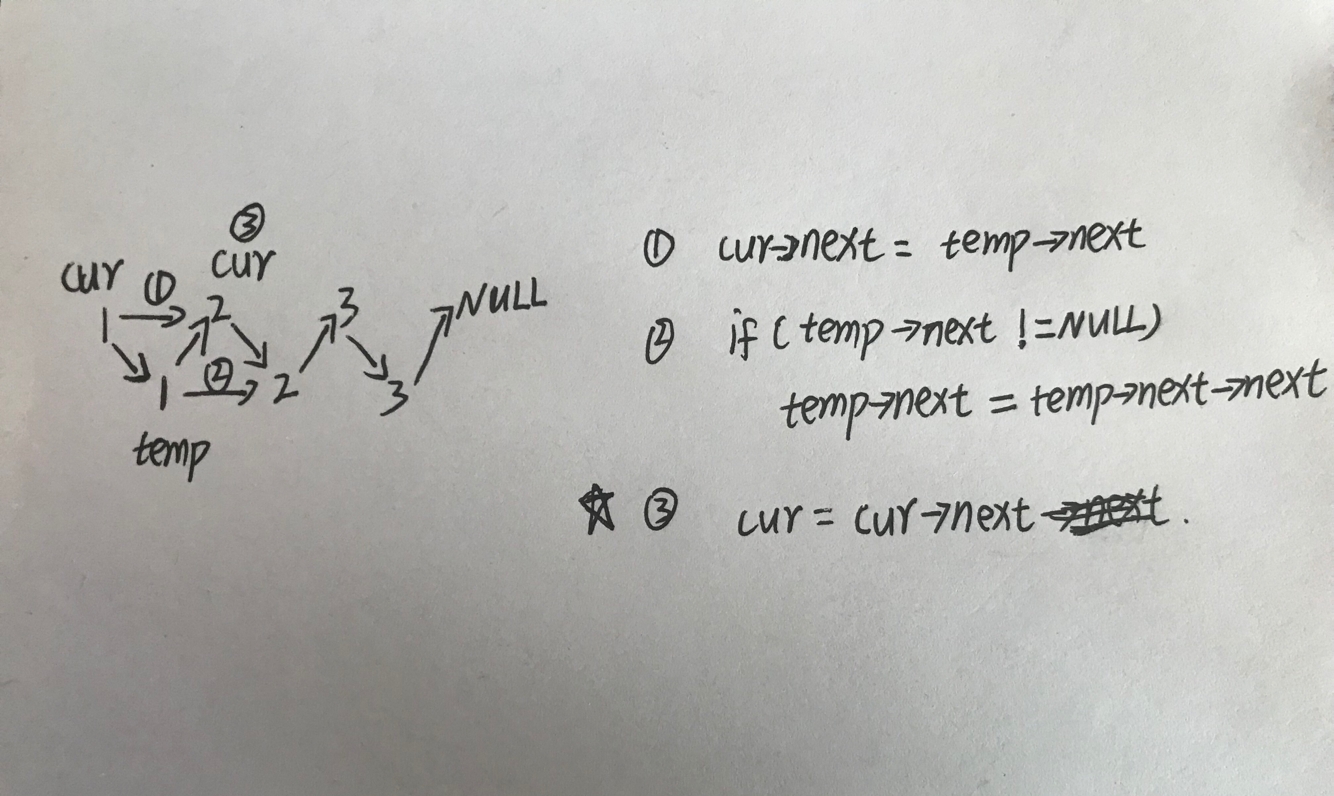 ③
cur ① cur
1 → 2 3 NULL
1 ② → 2 3
temp
① cur→next = temp→next
② if ( temp→next != NULL)
temp→next = temp→next→next
☆ ③ cur = cur→next →next .